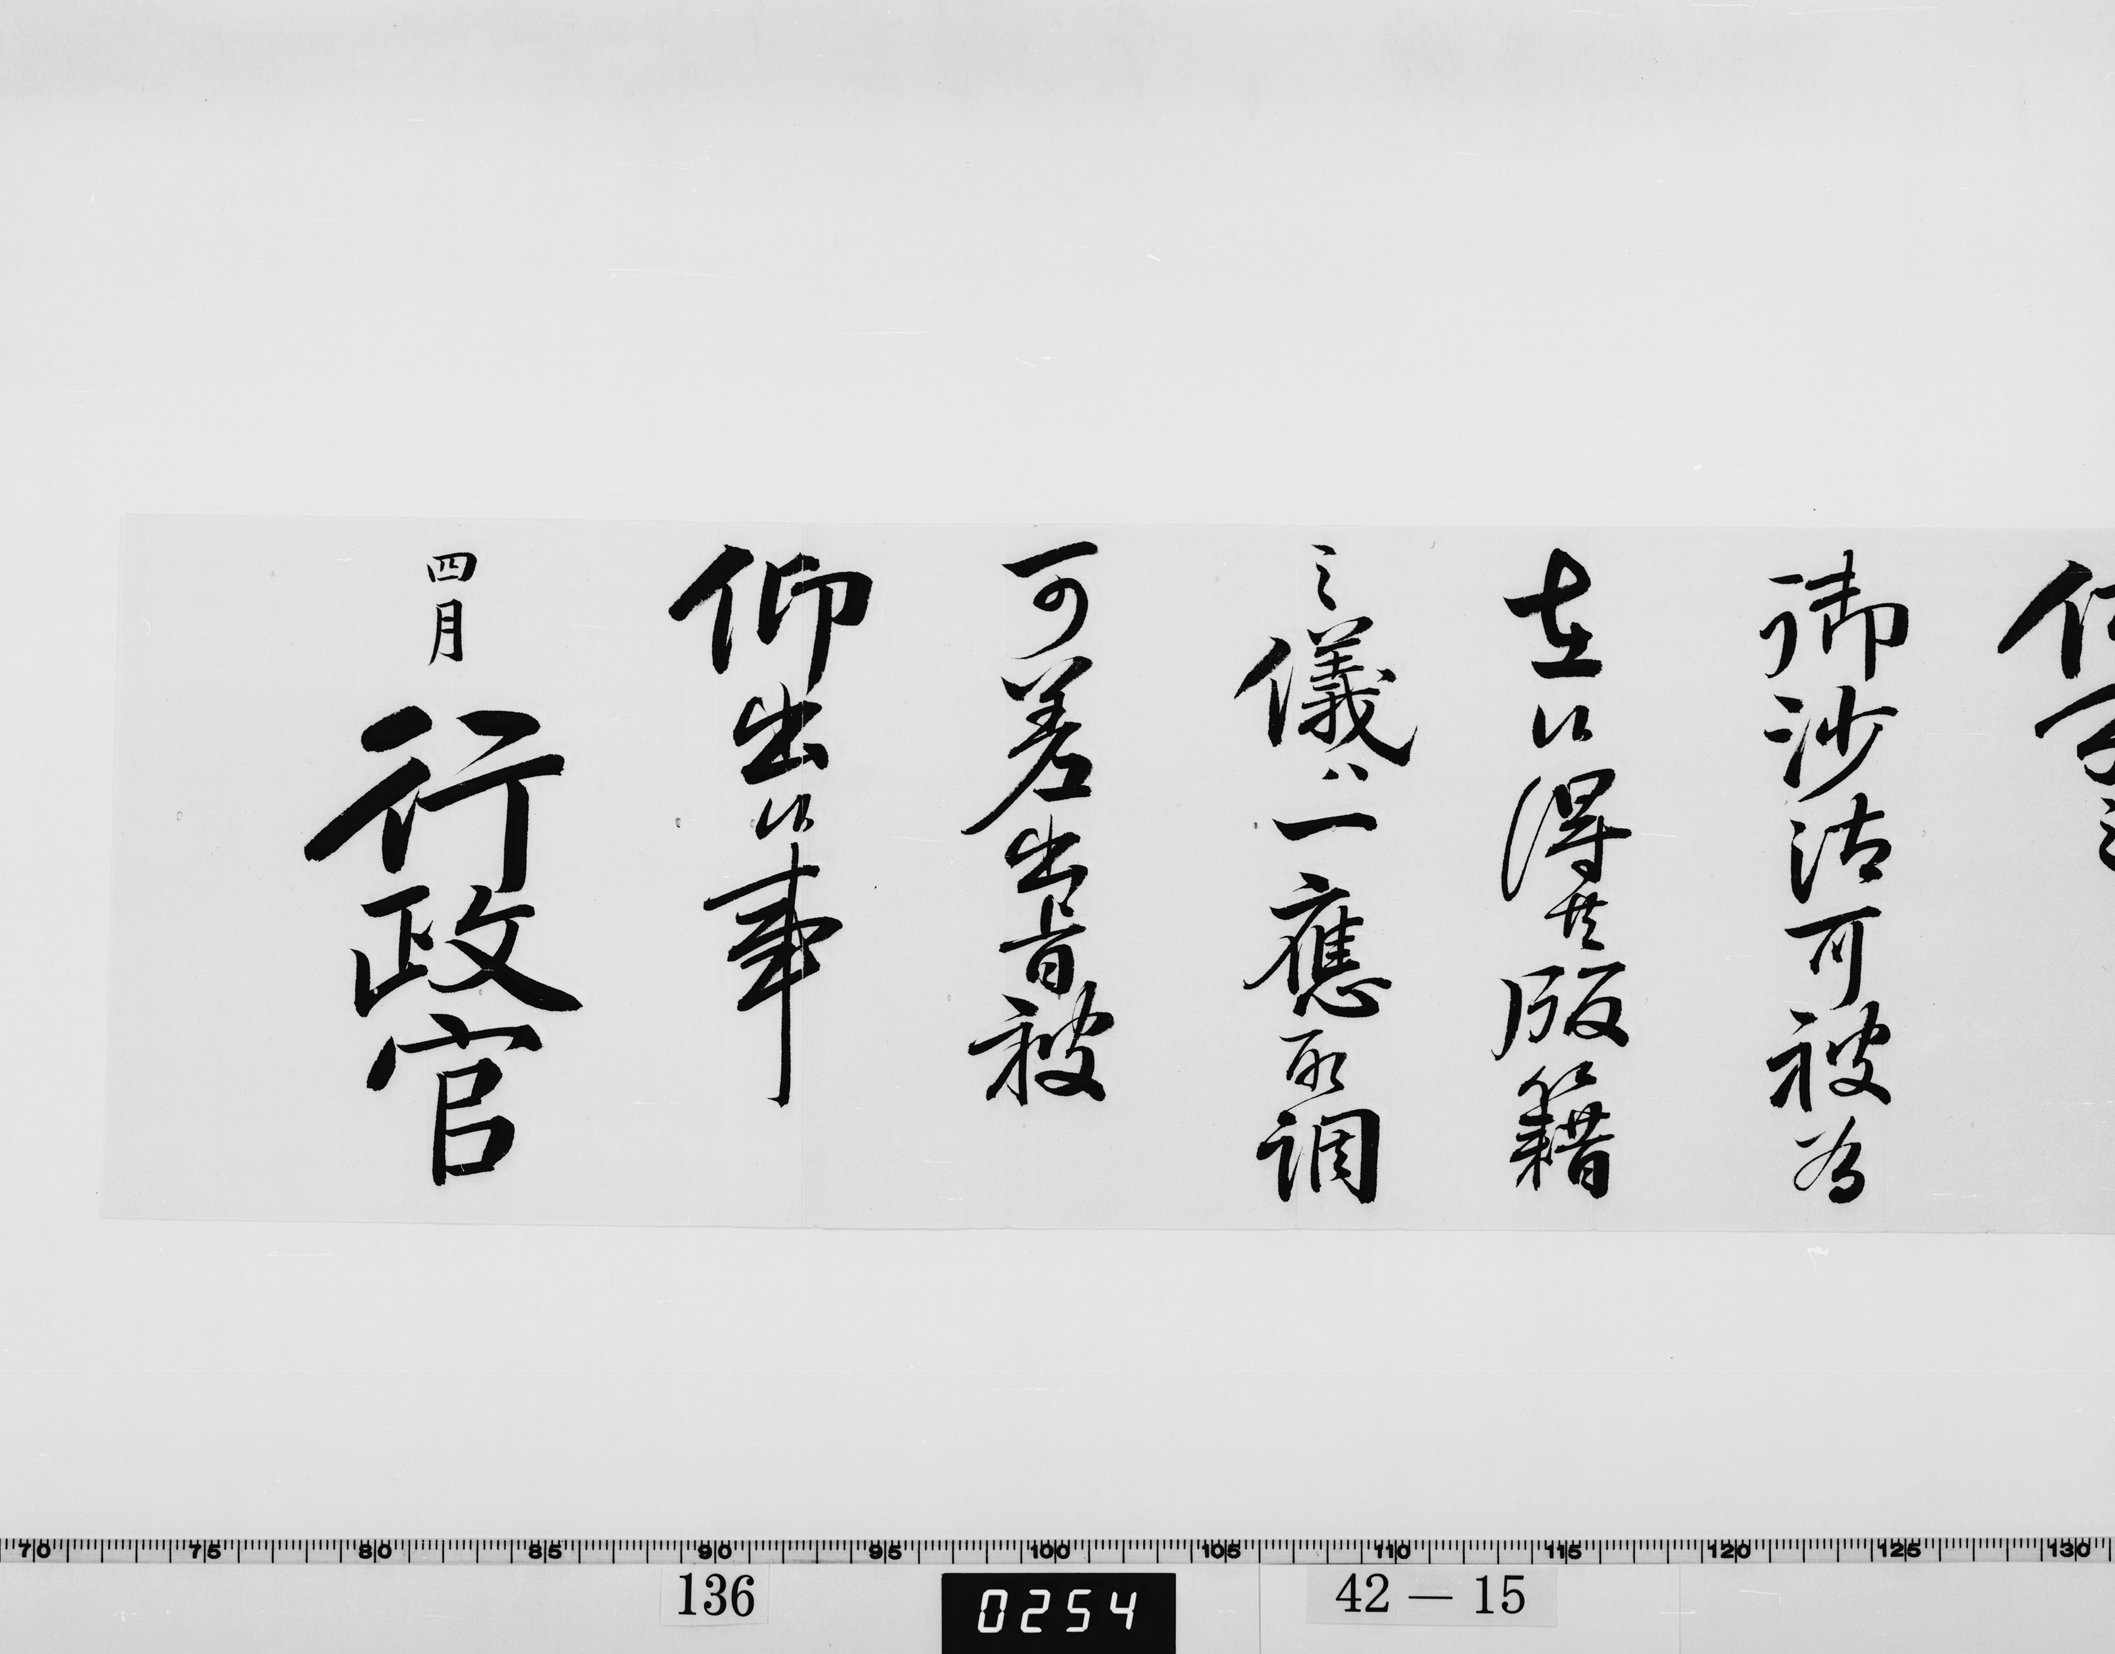 御沙汰可被為
在候得共版籍
之儀ハ一應取調
可差出旨被
仰出候事
四月 行政官
70 75 80 85 90 95 100 105 110 115 120 125 130
136
0254
42－15